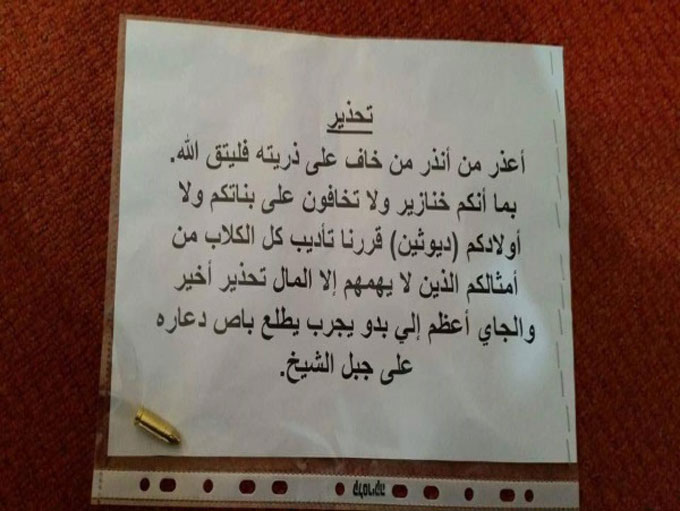 تحذير
أعذر من أنذر من خاف على ذريته فليتق الله.
بما أنكم خنازير ولا تخافون على بناتكم ولا
أولادكم (ديوثين) قررنا تأديب كل الكلاب من
أمثالكم الذين لا يهمهم إلا المال تحذير أخير
والجاي أعظم إلي بدو يجرب يطلع باص دعاره
على جبل الشيخ.